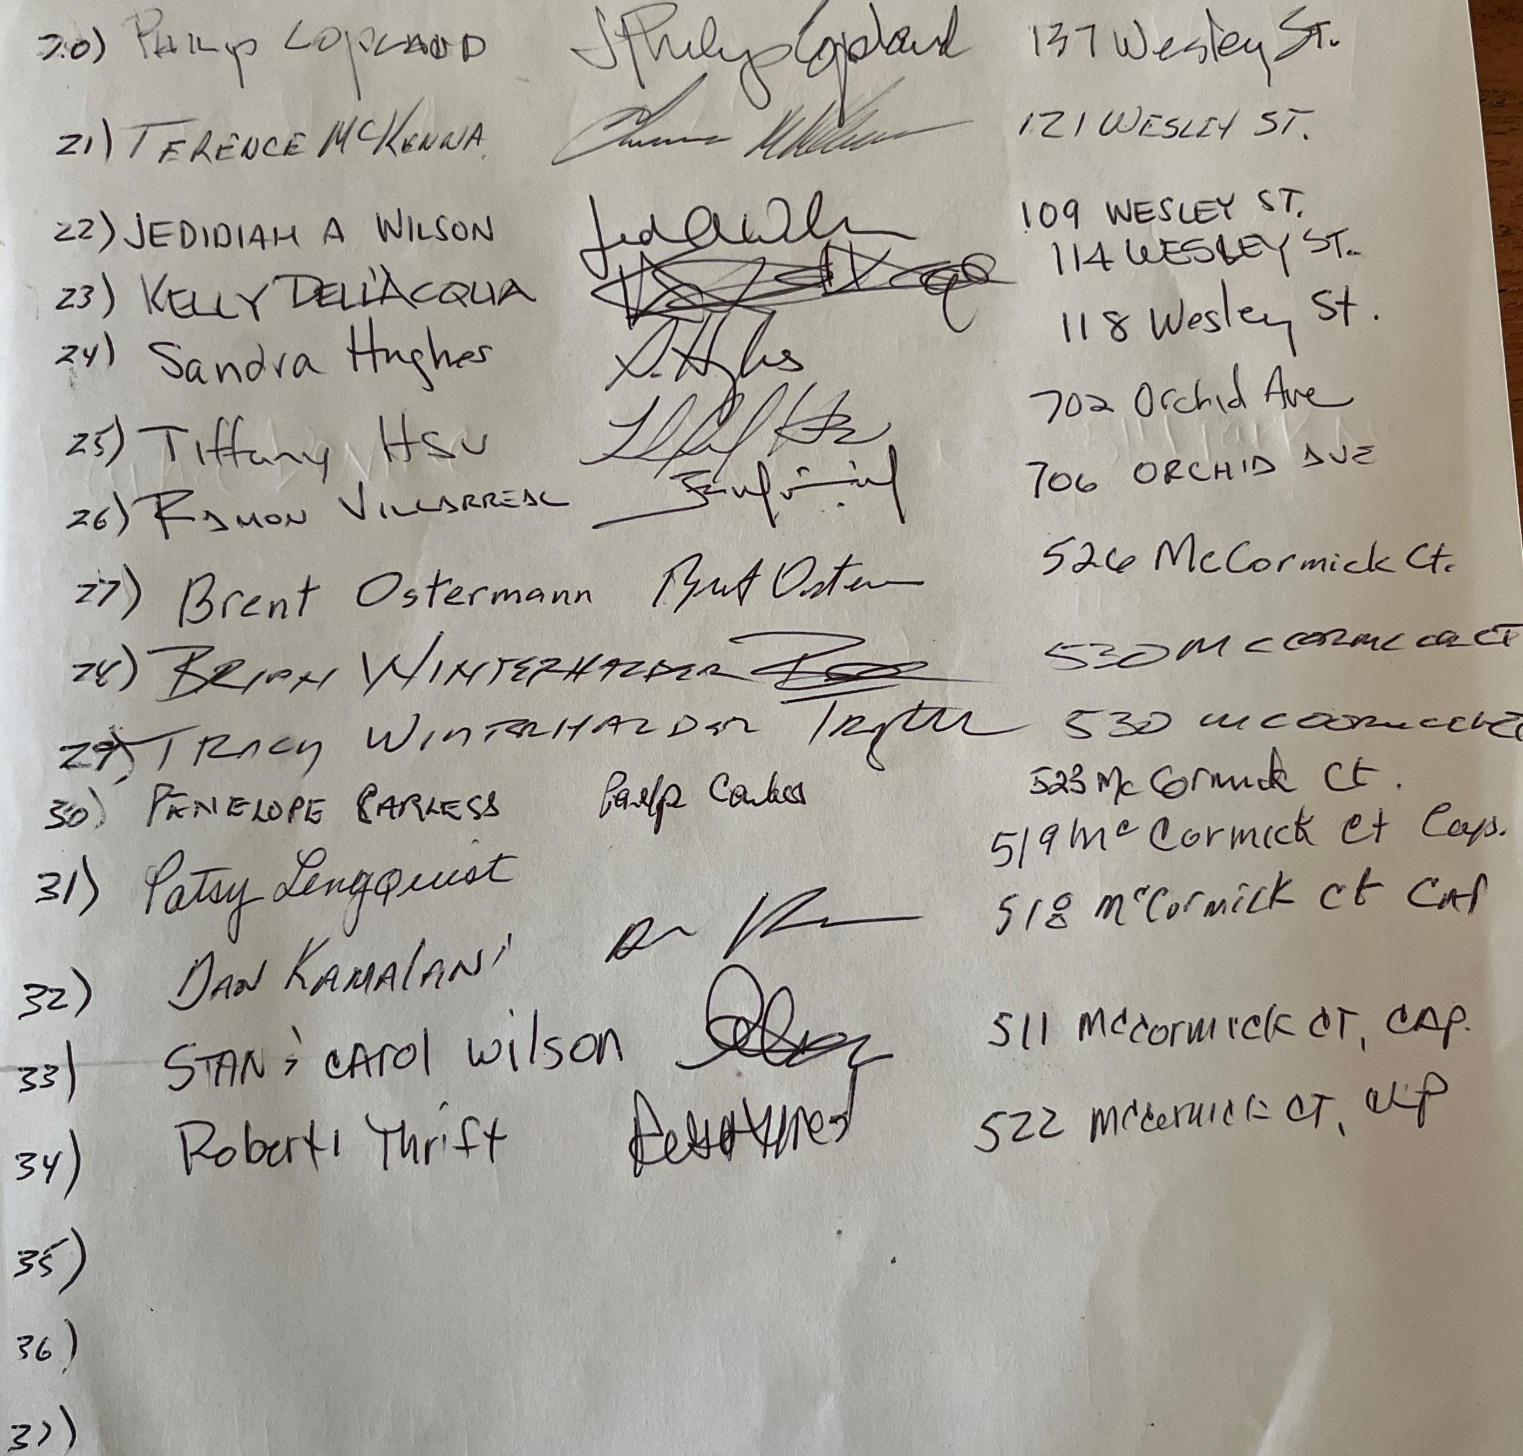 20) Philip Copeland J Philip Copeland 137 Wesley St.
21) TERENCE MCKENNA 121 WESLEY ST.
22) JEDIDIAH A WILSON 109 WESLEY ST.
23) KELLY DELL'ACQUA 114 WESLEY ST.
24) Sandra Hughes S. Hughes 118 Wesley St.
25) Tiffany HSU 702 Orchid Ave
26) RAMON VILLARREAL 706 ORCHID AVE
27) Brent Ostermann 526 McCormick Ct.
28) BRIAN WINTERHALDER 530 McCORMICK CT
29) TRACY WINTERHALDER 530 McCORMICK CT
30) PENELOPE CARLESS 523 McCormick Ct.
31) Patsy Lengquist 519 McCormick Ct Cap.
32) DAN KAMALANI 518 McCormick Ct CAP
33) STAN & CAROL Wilson 511 McCORMICK CT, CAP.
34) Roberta Thrift 522 McCormick CT, CAP
35)
36)
37)